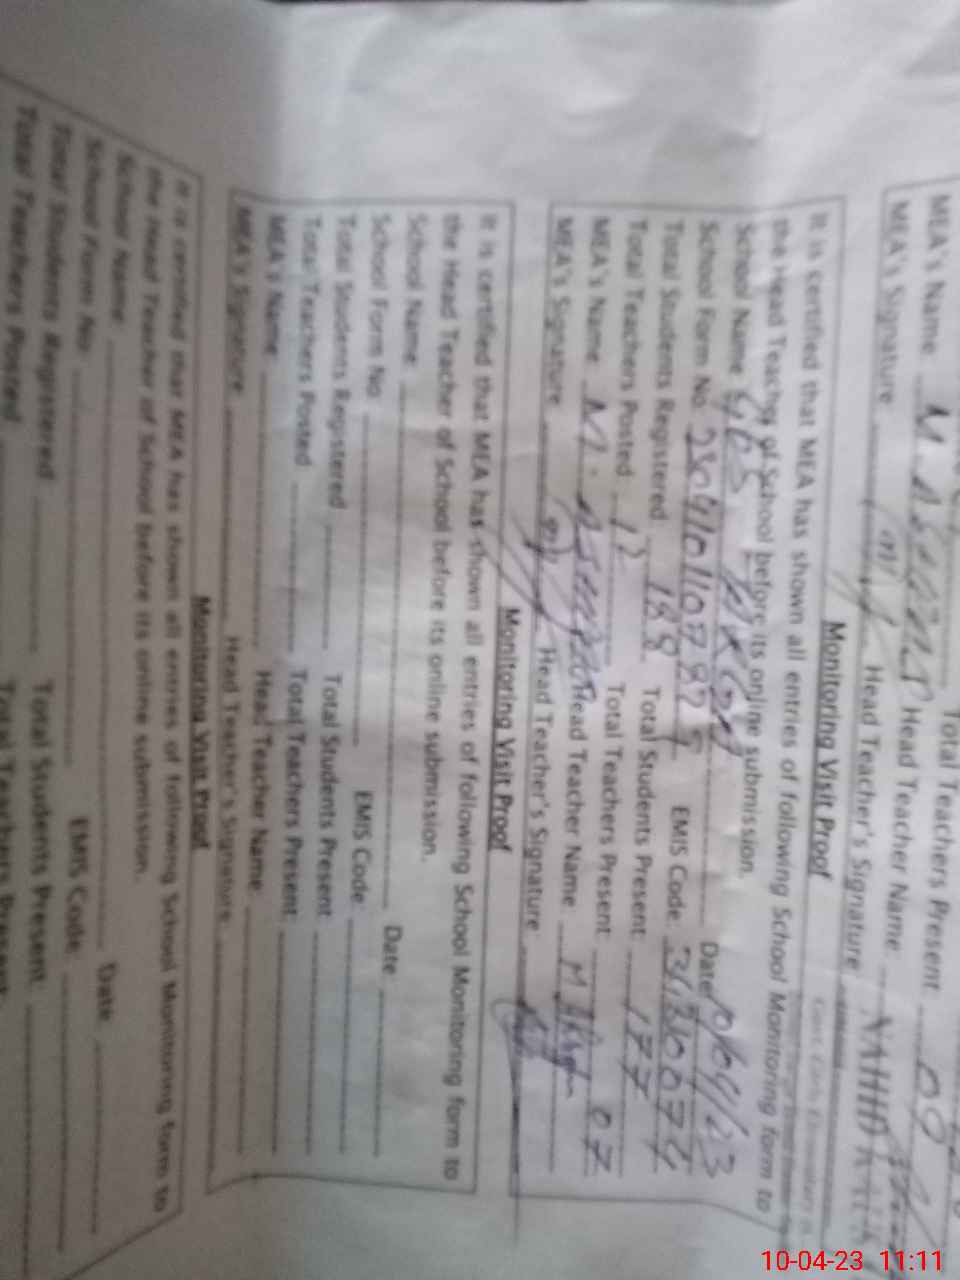 Total Teachers Present 09
MEA's Name: M. Head Teacher Name:
MEA's Signature Head Teacher's Signature
Monitoring Visit Proof
It is certified that MEA has shown all entries of following School Monitoring form to
the Head Teacher of School before its online submission.
School Name Date
School Form No. EMIS Code:
Total Students Registered 188 Total Students Present: 177
Total Teachers Posted 12 Total Teachers Present: 07
MEA's Name M. Head Teacher Name: M
MEA's Signature Head Teacher's Signature
Monitoring Visit Proof
It is certified that MEA has shown all entries of following School Monitoring form to
the Head Teacher of School before its online submission.
School Name: Date
School Form No EMIS Code:
Total Students Registered Total Students Present
Total Teachers Posted Total Teachers Present
MEA's Name Head Teacher Name:
MEA's Signature Head Teacher's Signature
Monitoring Visit Proof
It is certified that MEA has shown all entries of following School Monitoring form to
the Head Teacher of School before its online submission.
School Name: Date:
School Form No: EMIS Code:
Total Students Registered Total Students Present
Total Teachers Posted Total Teachers Present
10-04-23 11:11